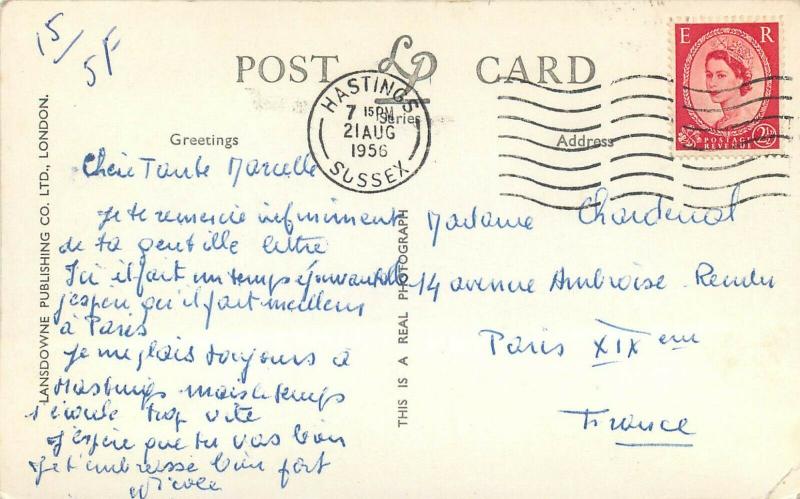 15/5F
POST CARD
LP
Series
HASTINGS
7 15PM
21 AUG
1956
SUSSEX
E R
POSTAGE
REVENUE
2½
Greetings
Address
LANSDOWNE PUBLISHING CO. LTD., LONDON.
THIS IS A REAL PHOTOGRAPH
Chère Tante Marcelle
Je te remercie infiniment
de ta gentille lettre
Ici il fait un temps épouvantable
j'espère qu'il fait meilleur
à Paris
Je me plais toujours à
Hastings mais le temps
s'écoule trop vite
J'espère que tu vas bien
Je t'embrasse bien fort
Nicole
Madame Chardenal
14 avenue Ambroise Rendu
Paris XIX eme
France